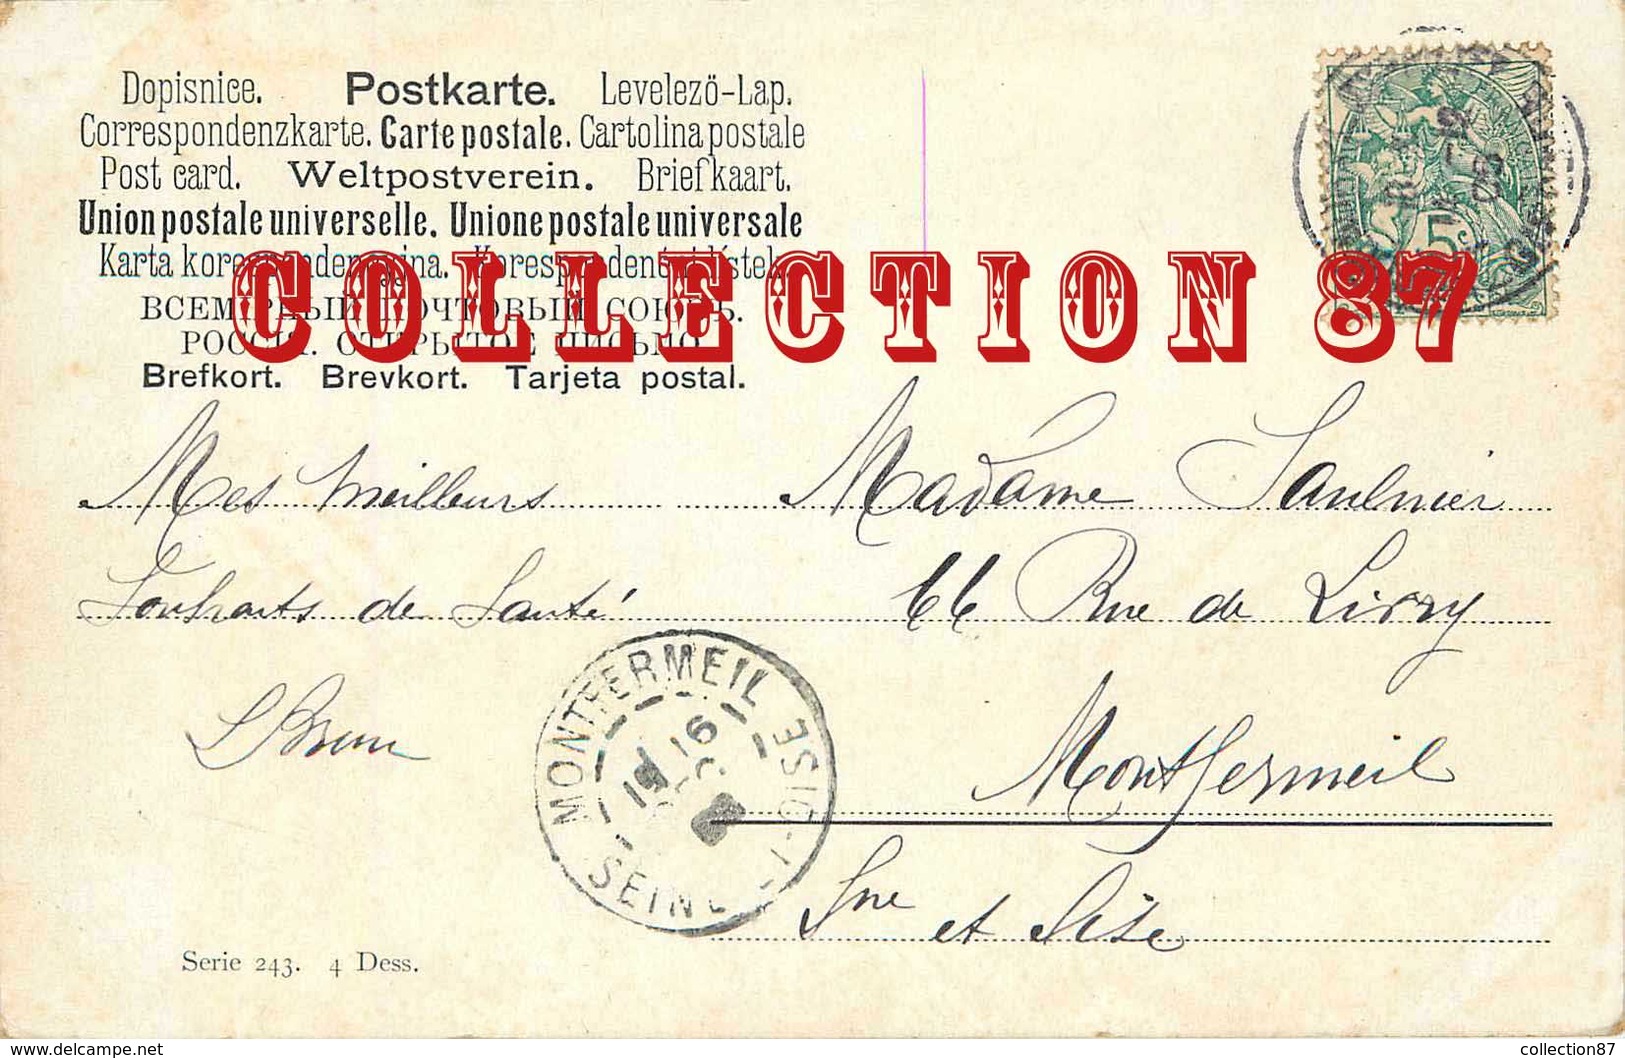 Dopisnice. Postkarte. Levelezö-Lap.
Correspondenzkarte. Carte postale. Cartolina postale
Post card. Weltpostverein. Briefkaart.
Union postale universelle. Unione postale universale
Karta korespondencyjna. Korespondentní lístek.
ВСЕМІРНЫЙ ПОЧТОВЫЙ СОЮЗЪ.
РОССІЯ. ОТКРЫТОЕ ПИСЬМО.
Brefkort. Brevkort. Tarjeta postal.
COLLECTION 87
5c
Mes meilleurs
Souhaits de Santé
L Brun
Madame Saulnier
66 Rue de Livry
Montfermeil
Sne et Oise
MONTFERMEIL
SEINE-ET-OISE
Serie 243. 4 Dess.
www.delcampe.net
collection87